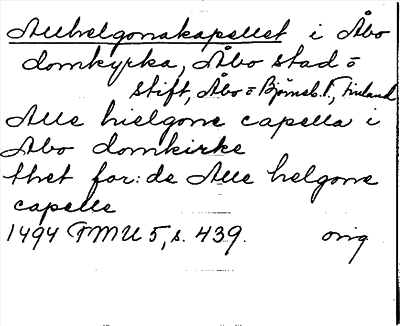 Allhelgonakapellet i Åbo
domkyrka, Åbo stad =
stift, Åbo = Björneb. l., Finland
Alle hielgone capella i
Abo domkirke
thet for: de Alle helgone
capelle
1494 FMU 5, s. 439. orig